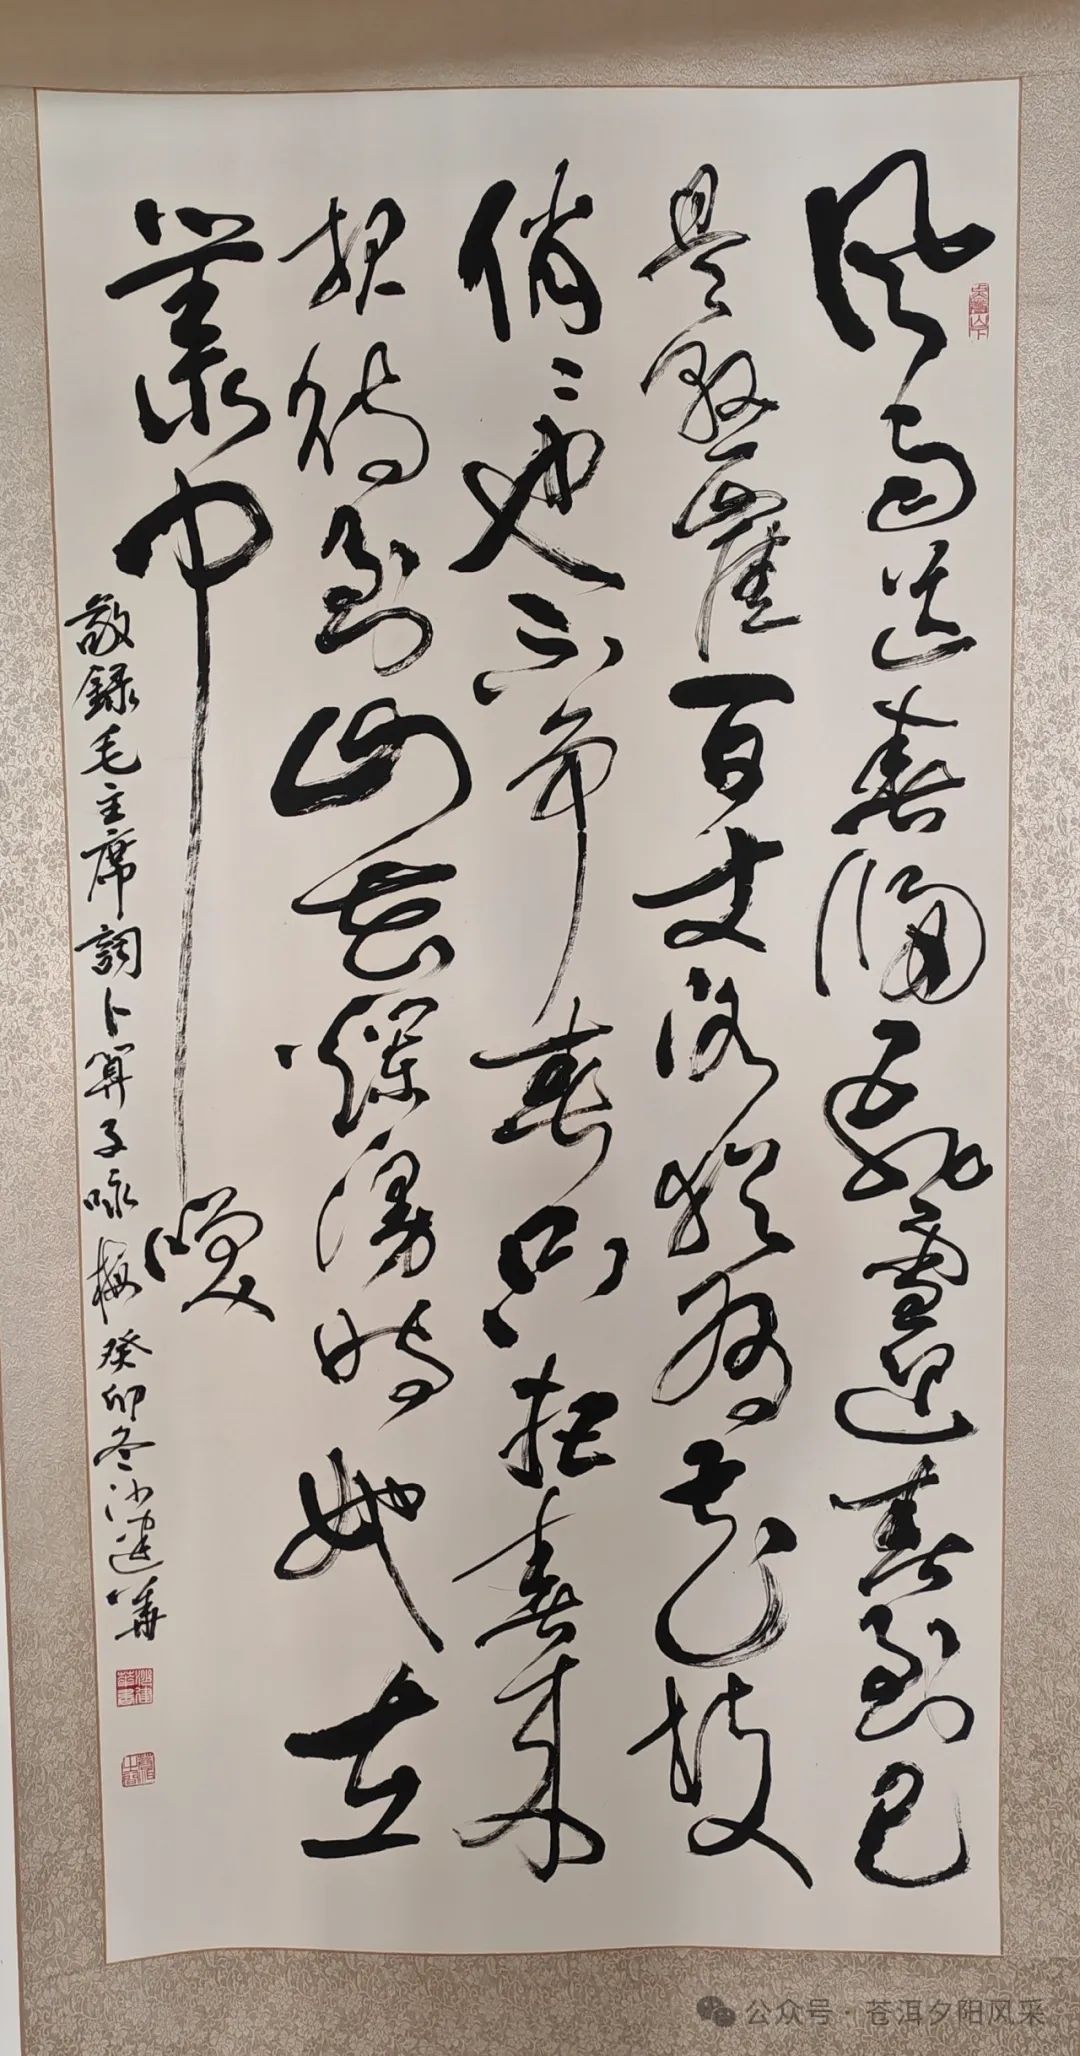 風雨送春歸飛雪迎春到已
是懸崖百丈冰猶有花枝
俏〻也不争春只把春来
報待到山花爛漫時她在
叢中笑
敬録毛主席詞卜算子咏梅癸卯冬沙建華
沙建華書
公众号·苍洱夕阳风采